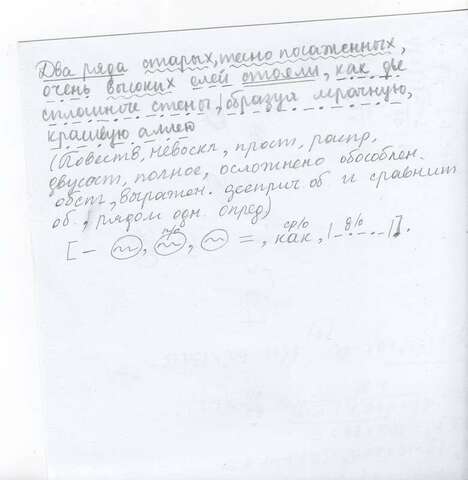 Два ряда старых, тесно посаженных,
очень высоких елей стояли, как две
сплошные стены, образуя мрачную,
красивую аллею
(Повеств, невоскл, прост, распр,
двусост, полное, осложнено обособлен.
обст, выражен. дееприч. об. и сравнит
об., рядом одн. опред)
[– , п/о , = , ср/о как, | д/о |].